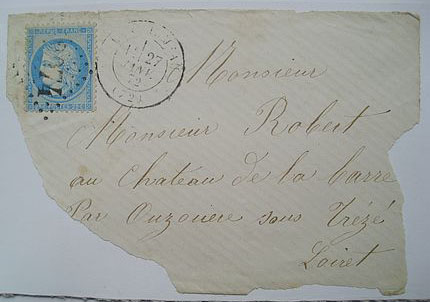 Monsieur
Monsieur Robert
au Chateau de la barre
Par Ouzouere sous Trézé
Loiret
27